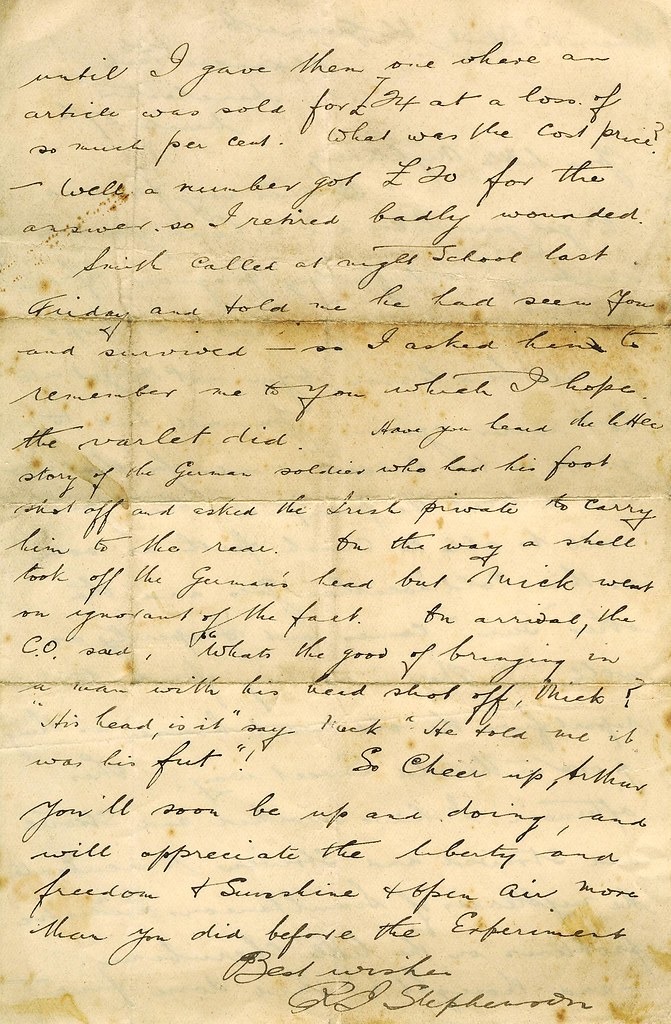 until I gave them one where an
article was sold for £24 at a loss of
so much per cent. What was the cost price?
– Well a number got £20 for the
answer. so I retired badly wounded.
Smith called at night School last
Friday and told me he had seen you
and survived – so I asked him to
remember me to you which I hope
the varlet did. Have you heard the little
story of the German soldier who had his foot
shot off and asked the Irish private to carry
him to the rear. On the way a shell
took off the German's head but Mick went
on ignorant of the fact. On arrival, the
C.O. said, "Whats the good of bringing in
a man with his head shot off, Mick?
"His head, is it" say Mick "He told me it
was his fut"! So Cheer up, Arthur
you'll soon be up and doing, and
will appreciate the liberty and
freedom & Sunshine & open air more
than you did before the Experiment
Best wishes
R J Stephenson